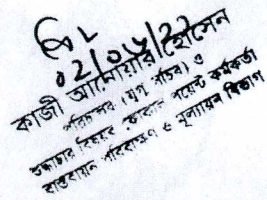 02/০৬/22
কাজী আনোয়ার হোসেন
পরিচালক (যুগ্ম সচিব) ও
শুদ্ধাচার বিষয়ক ফোকাল পয়েন্ট কর্মকর্তা
বাস্তবায়ন পরিবীক্ষণ ও মূল্যায়ন বিভাগ